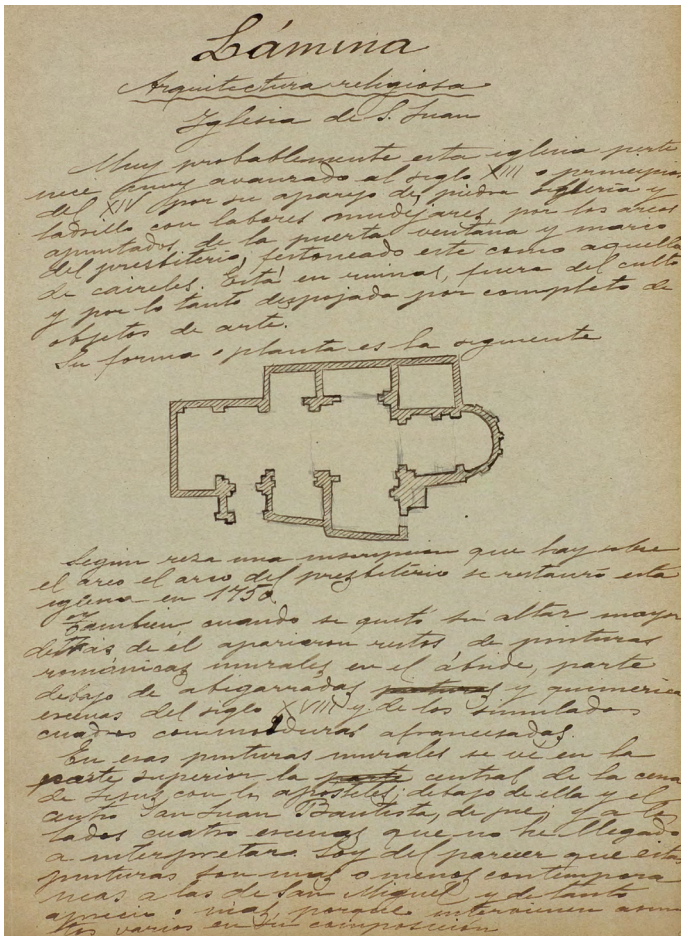 Lámina
Arquitectura religiosa
Iglesia de S. Juan
Muy probablemente esta iglesia perte
nece muy avanzado al siglo XIII o principios
del XIV por su aparejo de piedra sillería y
ladrillo con labores mudéjares, por los arcos
apuntados de la puerta ventana y marco
del presbiterio, festoneado este como aquella
de caireles. Está en ruinas, fuera del culto
y por lo tanto despojada por completo de
objetos de arte.
Su forma o planta es la siguiente
Según reza una inscripción que hay sobre
el arco el arco del presbiterio se restauró esta
iglesia en 1750
También cuando se quitó su altar mayor
detrás de él aparecieron restos de pinturas
románicas murales en el ábside, parte
debajo de abigarradas y quimerica
escenas del siglo XVIII y de los simulados
cuadros con molduras afrancesadas.
En esas pinturas murales se vé en la
parte superior la parte central de la cena
de Jesus con los apostoles; debajo de ella y el
centro San Juan Bautista, de pie; y a los
lados cuatro escenas que no he llegado
a interpretar. Soy del parecer que estas
pinturas son mas o menos contempora
neas a las de San Miguel y de tanto
aprecio o mas, porque intervienen asun
tos varios en su composicion